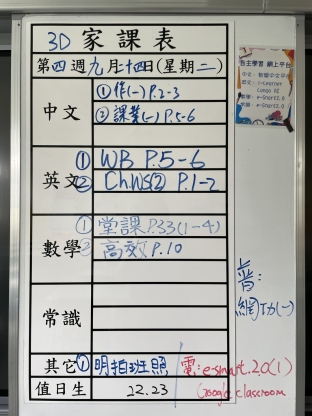 3D 家課表
第四週九月二十四日(星期二)
中文
①作(一) P.2-3
②課業(一) P.5-6
英文
① WB P.5-6
② Ch.WS(2) P.1-2
數學
①堂課 P.33(1-4)
②高效 P.10
常識
其它 ① 明拍班照
電: e-smart 2.0(1)
Google classroom
值日生 22.23
普:
網
自主學習 網上平台